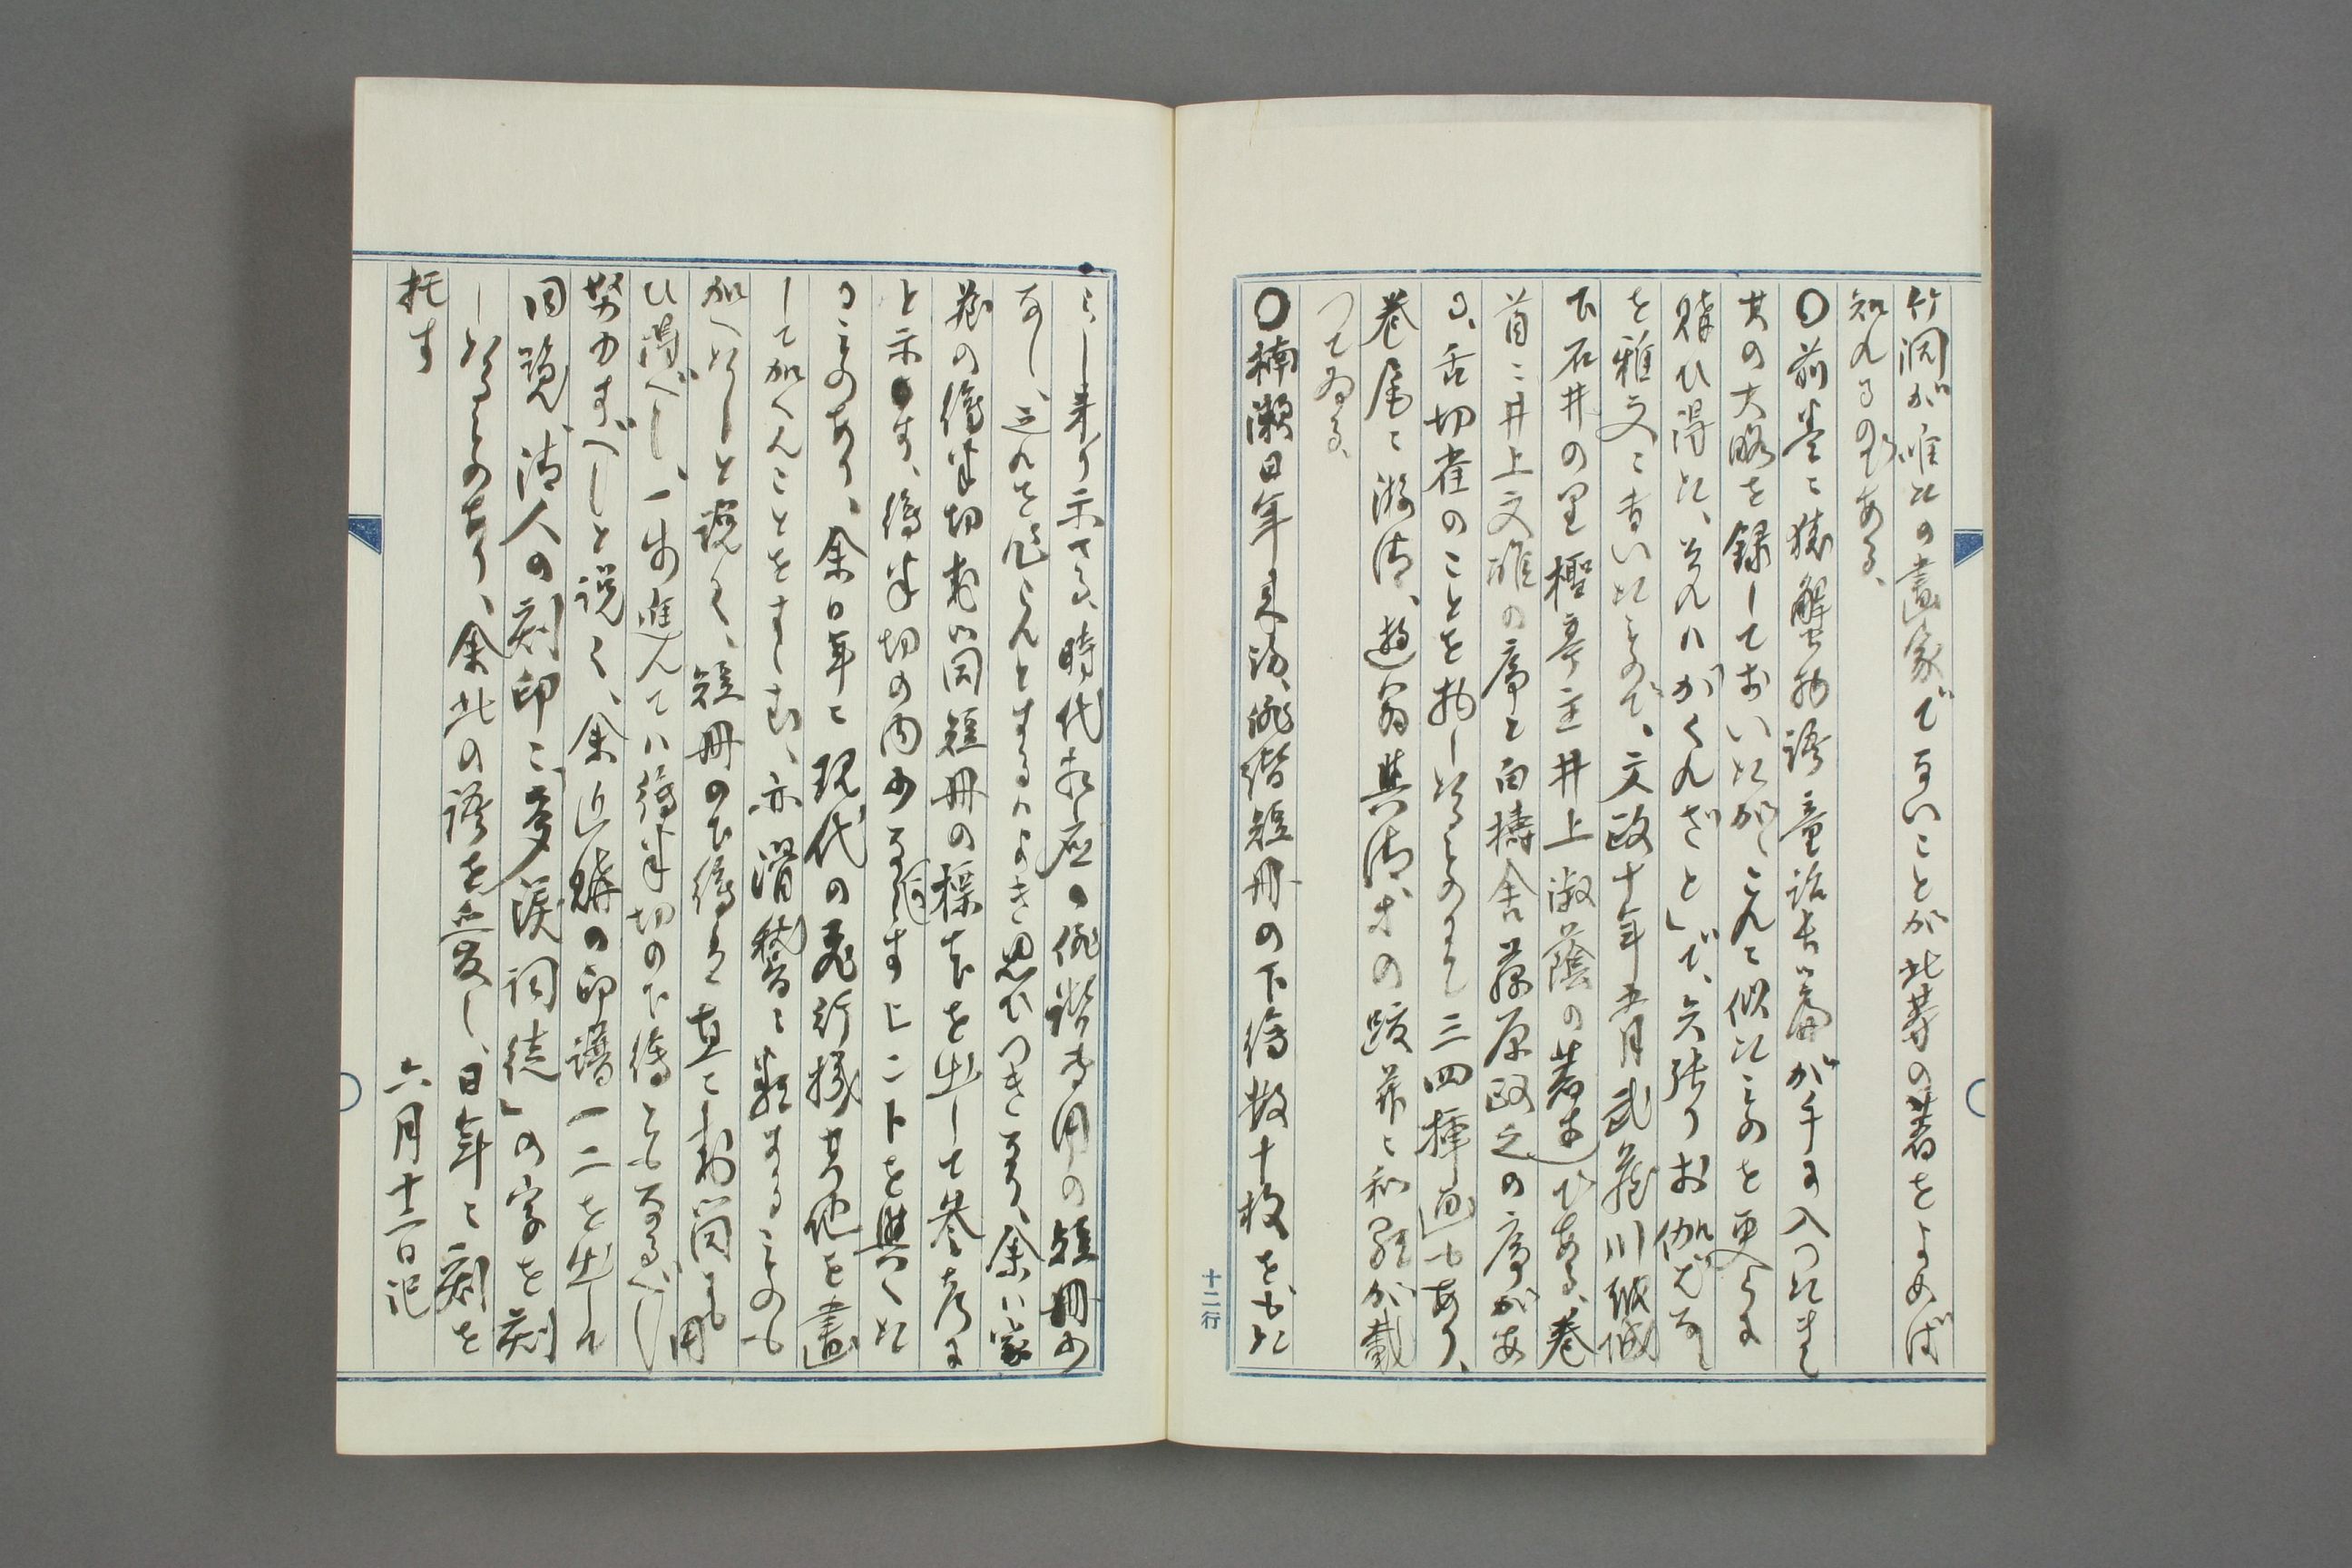 竹洞が唯の畫家でないことが此等の著をよめば
知れるのである、
〇前巻に猿蟹物語童話長篇が手に入つた
其の大略を録しておいたが、これに似たものを更らに
購ひ得た、それハ「かくれざと」で、六張りお伽ばなし
を雅文に書いたもので、文政十年五月武蔵川越城
下石井の里檉亭主井上淑蔭の著述である、巻
首に井上文雄の序と函擣舎藤原政之の序があ
る、舌切雀のことを物したもので三四挿画もあり、
巻尾に游清、遊翁與清等の跋并に和歌が載
つてゐる、
〇楠瀬日年来訪、俳諧短冊の下繪数十枚をもた
らし来り示さる、時代相應の俳諧専用の短冊少
なし、之れを作らんとするハよき思ひつきなり、余ハ家
蔵の繪半切封筒短冊の標本を出して参考に
と示す、繪半切の内少なからす上二下を與へた
るものあり、余日年に現代の流行様其他を畫
して加へんことをすゝむ、亦滑稽に類するものも
加へたしと説く、短冊の下繪は直に封筒にも用
ひ得べし、一歩進んでハ繪半切の下繪ともなるべし
努力すべしと説く、余近購の印譜一二を出して
同覧、清人の刻印に「多涙詞徒」の字を刻
したるものあり、余此の語を愛し、日年に刻を
托す
六月十一日記
十二行